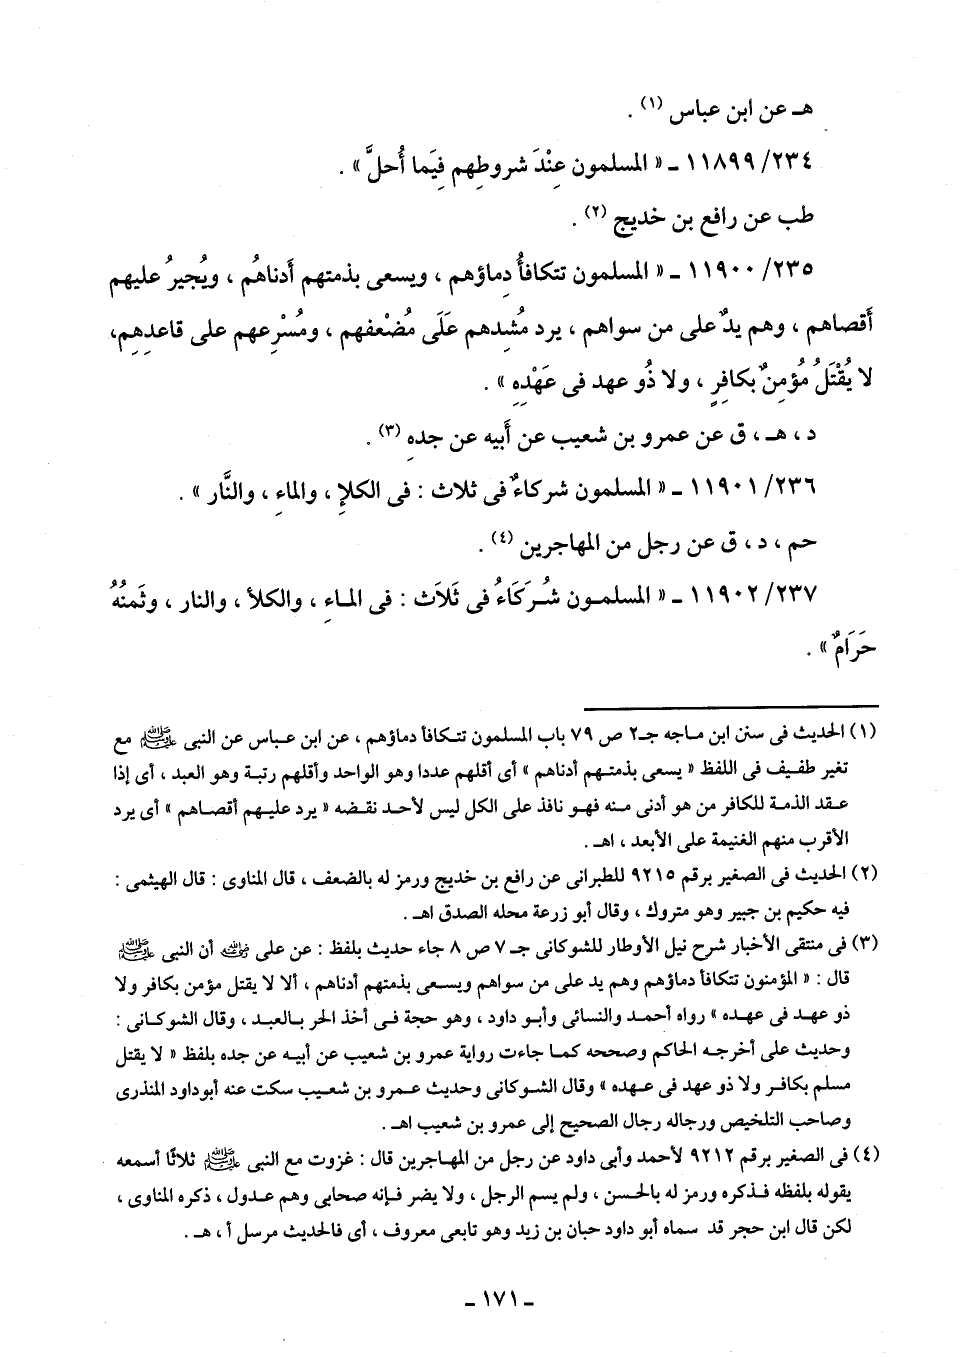 هـ عن ابن عباس (١) .
٢٣٤/ ١١٨٩٩ ـ « المسلمون عِنْدَ شروطِهم فِيَما أُحلَّ » .
طب عن رافع بن خديج (٢) .
٢٣٥/ ١١٩٠٠ ـ « المسلمون تتكافأُ دِماؤهم ، ويسعى بذمتهم أَدناهُم ، ويُجيرُ عليهم
أَقصاهم ، وهم يدٌ على من سواهم ، يرد مُشِدهم عَلَى مُضْعفهم ، ومُسْرِعهم على قاعدِهِم،
لا يُقْتَلُ مُؤمِنٌ بكافرٍ ، ولا ذُو عهد فى عَهْدِهِ » .
د ، هـ ، ق عن عمرو بن شعيب عن أَبيه عن جدهِ (٣) .
٢٣٦/ ١١٩٠١ ـ « المسلمون شركاءٌ فى ثلاث : فى الكلإِ ، والماءِ ، والنَّار » .
حم ، د ، ق عن رجل من المهاجرين (٤) .
٢٣٧/ ١١٩٠٢ ـ « المسلمون شُركَاءُ فى ثَلاَث : فى الماءِ ، والكلأ ، والنار ، وثَمنُهُ
حَرَامٌ » .
(١) الحديث فى سنن ابن ماجه جـ٢ ص ٧٩ باب المسلمون تتكافأ دماؤهم ، عن ابن عباس عن النبى ﷺ مع
تغير طفيف فى اللفظ « يسعى بذمتهم أدناهم » أى أقلهم عددا وهو الواحد وأقلهم رتبة وهو العبد ، أى إذا
عقد الذمة للكافر من هو أدنى منه فهو نافذ على الكل ليس لأحد نقضه « يرد عليهم أقصاهم » أى يرد
الأقرب منهم الغنيمة على الأبعد ، اهـ .
(٢) الحديث فى الصغير برقم ٩٢١٥ للطبرانى عن رافع بن خديج ورمز له بالضعف ، قال المناوى : قال الهيثمى :
فيه حكيم بن جبير وهو متروك ، وقال أبو زرعة محله الصدق اهـ .
(٣) فى منتقى الأخبار شرح نيل الأوطار للشوكانى جـ ٧ ص ٨ جاء حديث بلفظ : عن على رضي الله عنه أن النبى ﷺ
قال : « المؤمنون تتكافأ دماؤهم وهم يد على من سواهم ويسعى بذمتهم أدناهم ، ألا لا يقتل مؤمن بكافر ولا
ذو عهد فى عهده » رواه أحمد والنسائى وأبو داود ، وهو حجة فى أخذ الحر بالعبد ، وقال الشوكانى :
وحديث على أخرجه الحاكم وصححه كما جاءت رواية عمرو بن شعيب عن أبيه عن جده بلفظ « لا يقتل
مسلم بكافر ولا ذو عهد فى عهده » وقال الشوكانى وحديث عمرو بن شعيب سكت عنه أبوداود المنذرى
وصاحب التلخيص ورجاله رجال الصحيح إلى عمرو بن شعيب اهـ .
(٤) فى الصغير برقم ٩٢١٢ لأحمد وأبى داود عن رجل من المهاجرين قال : غزوت مع النبى ﷺ ثلاثًا أسمعه
يقوله بلفظه فذكره ورمز له بالحسن ، ولم يسم الرجل ، ولا يضر فإنه صحابى وهم عدول ، ذكره المناوى ،
لكن قال ابن حجر قد سماه أبو داود حبان بن زيد وهو تابعى معروف ، أى فالحديث مرسل أ ، هـ .
ـ ١٧١ ـ